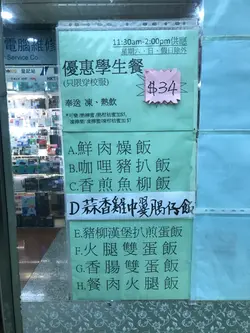 電腦維修
Service Co
11:30am-2:00pm供應
星期六、日、假日除外
優惠學生餐
(只限穿校服)
$34
奉送 凍、熱飲
A.鮮肉燥飯
B.咖哩豬扒飯
C.香煎魚柳飯
D 蒜香雞中翼腸仔飯
E.豬柳漢堡扒煎蛋飯
F.火腿雙蛋飯
G.香腸雙蛋飯
H.餐肉火腿飯